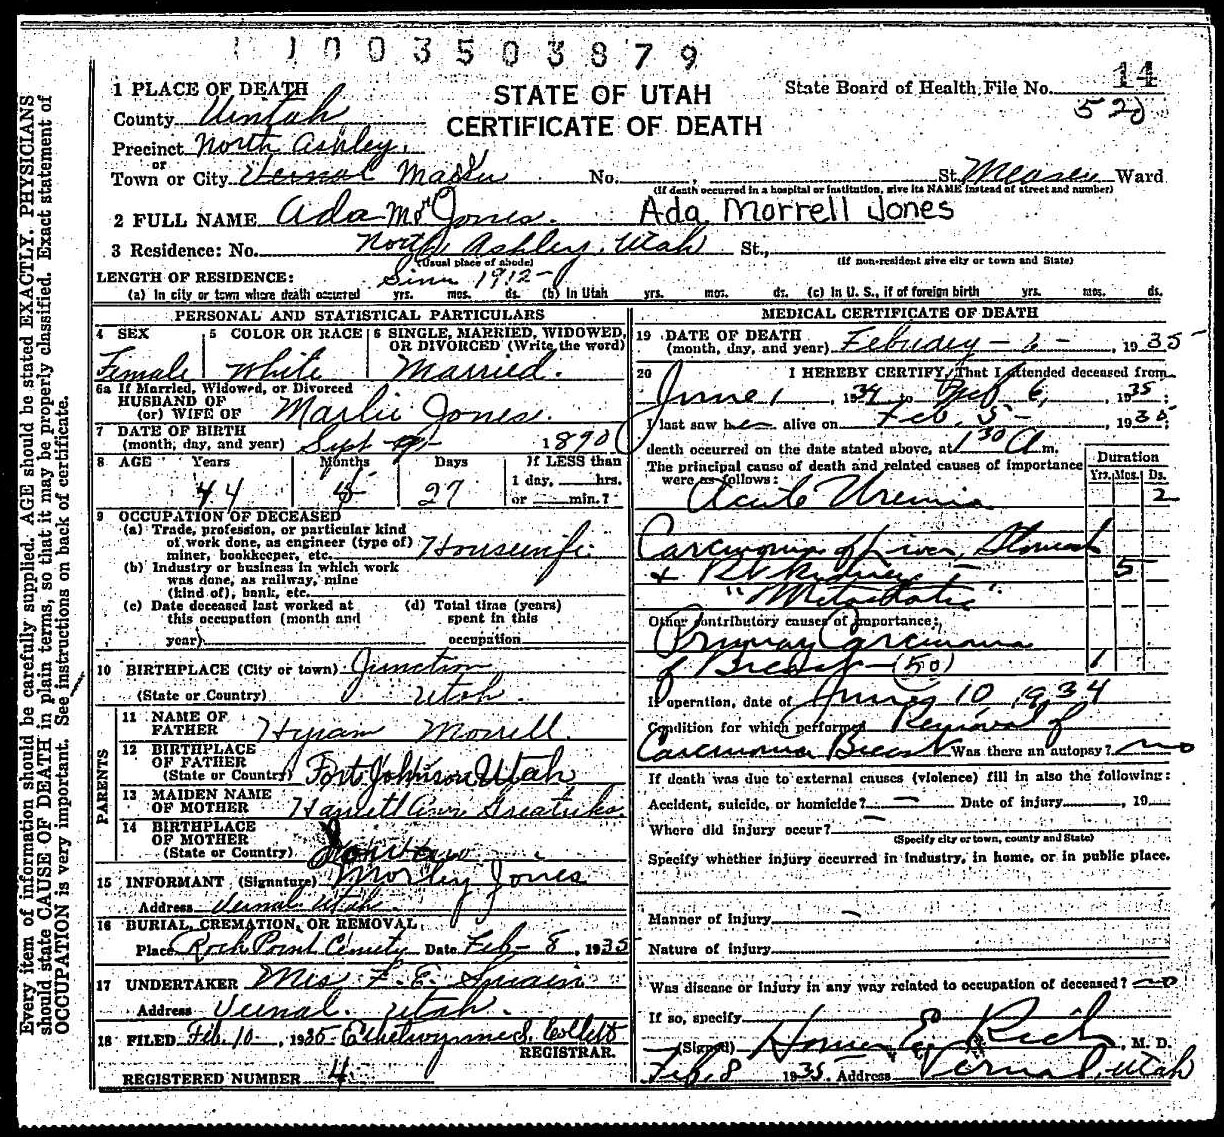 1003503879
1 PLACE OF DEATH
STATE OF UTAH
State Board of Health File No. 14
520
County Uintah
CERTIFICATE OF DEATH
Precinct North Ashley
or
Town or City Vernal Maeser No. St. Maeser Ward
(If death occurred in a hospital or institution, give its NAME instead of street and number)
2 FULL NAME Ada M Jones. Ada Morrell Jones
3 Residence: No. North Ashley, Utah St.,
(Usual place of abode) (If non-resident give city or town and State)
LENGTH OF RESIDENCE: Since 1912
(a) In city or town where death occurred yrs. mos. ds. (b) In Utah yrs. mos. ds. (c) In U. S., if of foreign birth yrs. mos. ds.
PERSONAL AND STATISTICAL PARTICULARS
4 SEX 5 COLOR OR RACE 6 SINGLE, MARRIED, WIDOWED,
OR DIVORCED (Write the word)
Female White Married.
6a If Married, Widowed, or Divorced
HUSBAND OF
(or) WIFE OF Jones.
7 DATE OF BIRTH
(month, day, and year) Sept 9 1890
8 AGE Years Months Days If LESS than
1 day, hrs.
44 27 or min.?
9 OCCUPATION OF DECEASED
(a) Trade, profession, or particular kind
of work done, as engineer (type of)
miner, bookkeeper, etc. Housewife
(b) Industry or business in which work
was done, as railway, mine
(kind of), bank, etc.
(c) Date deceased last worked at (d) Total time (years)
this occupation (month and spent in this
year) occupation
10 BIRTHPLACE (City or town) Junction
(State or Country) Utah.
PARENTS
11 NAME OF
FATHER Hyram Morrell.
12 BIRTHPLACE
OF FATHER
(State or Country) Fort Johnson Utah
13 MAIDEN NAME
OF MOTHER Harriett Ann
14 BIRTHPLACE
OF MOTHER
(State or Country)
15 INFORMANT (Signature) Morley Jones
Address Vernal Utah.
16 BURIAL, CREMATION, OR REMOVAL,
Place Rock Point Cemetery Date Feb - 8, 1935
17 UNDERTAKER Mrs F. E. Swain
Address Vernal. Utah.
18 FILED Feb. 10, 1935 Ethelwynne S. Collett
REGISTRAR.
REGISTERED NUMBER 4
MEDICAL CERTIFICATE OF DEATH
19 DATE OF DEATH
(month, day, and year) Febuary - 6 -, 1935
20 I HEREBY CERTIFY, That I attended deceased from
June 1, 1934 to Feb 6, 1935;
I last saw her alive on Feb. 5 - 1935;
death occurred on the date stated above, at 1 30 A m.
The principal cause of death and related causes of importance
were as follows:
Duration
Yrs. Mos. Ds.
Acute Uremia 2
Carcinoma of Liver, Stomach
+ Rt Kidney - 5
"Metastatic"
Other contributory causes of importance:
Primary Carcinoma
of Breast - (50) 1
If operation, date of June 10, 1934
Condition for which performed Removal of
Carcinoma Breast Was there an autopsy? no
If death was due to external causes (violence) fill in also the following:
Accident, suicide, or homicide? — Date of injury , 19
Where did injury occur? —
(Specify city or town, county and State)
Specify whether injury occurred in industry, in home, or in public place.
Manner of injury —
Nature of injury
Was disease or injury in any way related to occupation of deceased? no
If so, specify
(Signed) Homer E. Rich, M. D.
Feb. 8 1935. Address Vernal, Utah
Every item of information should be carefully supplied. AGE should be stated EXACTLY. PHYSICIANS
should state CAUSE OF DEATH in plain terms, so that it may be properly classified. Exact statement of
OCCUPATION is very important. See instructions on back of certificate.